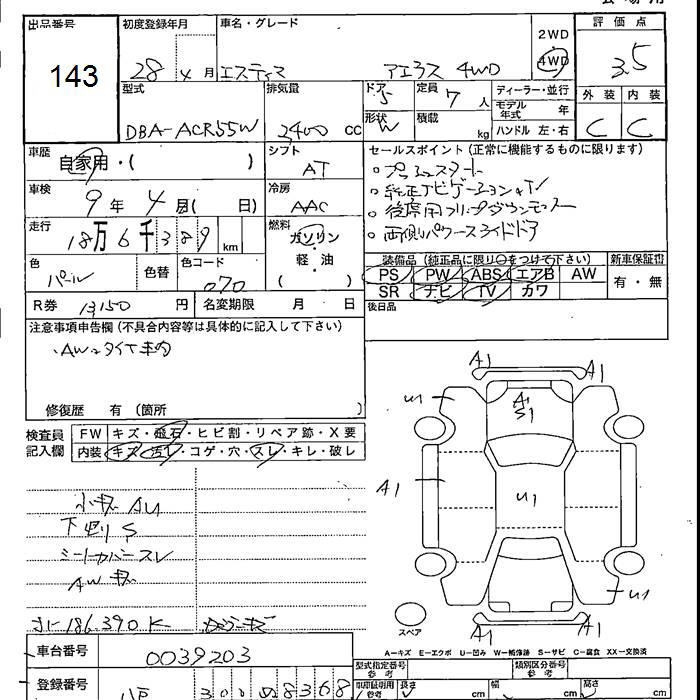 出品番号 初度登録年月 車名・グレード 2WD 4WD 評価点
143 28 4月 エスティマ アエラス 4WD 3.5
型式 排気量 ドア 5 定員 7人 ディーラー・並行 外装 内装
DBA-ACR55W 2400 CC 形状 W 積載 kg モデル年式 年 ハンドル 左・右 C C
車歴 自家用・( ) シフト AT
車検 9年 4月( 日) 冷房 AAC
走行 18万6千389 km 燃料 ガソリン 軽・油
色 パール 色替 色コード 070
R券 13150円 名変期限 月 日
セールスポイント(正常に機能するものに限ります)
○プッシュスタート
○純正ナビゲーション&TV
○後席用フリップダウンモニター
○両側パワースライドドア
装備品(純正品に限り○をつけて下さい) 新車保証書
PS PW ABS エアB AW 有・無
SR ナビ TV カワ
後日品
注意事項申告欄(不具合内容等は具体的に記入して下さい)
・AW・タイヤ車内
修復歴 有(箇所 )
検査員記入欄 FW キズ・飛石・ヒビ割・リペア跡・X要
内装 キズ・汚レ・コゲ・穴・スレ・キレ・破レ
小キズ AU
下廻り S
シートカバースレ
AW キズ
186.390K
A1
A1
U1
A1
S1
A1
U1
U1
A1
A1
スペア
A-キズ E-エクボ U-凹み W-補修跡 S-サビ C-腐食 XX-交換済
車台番号 0039203
登録番号 八戸 300 8368
型式指定番号 参考 類別区分番号 参考
長さ cm 幅 cm 高さ cm